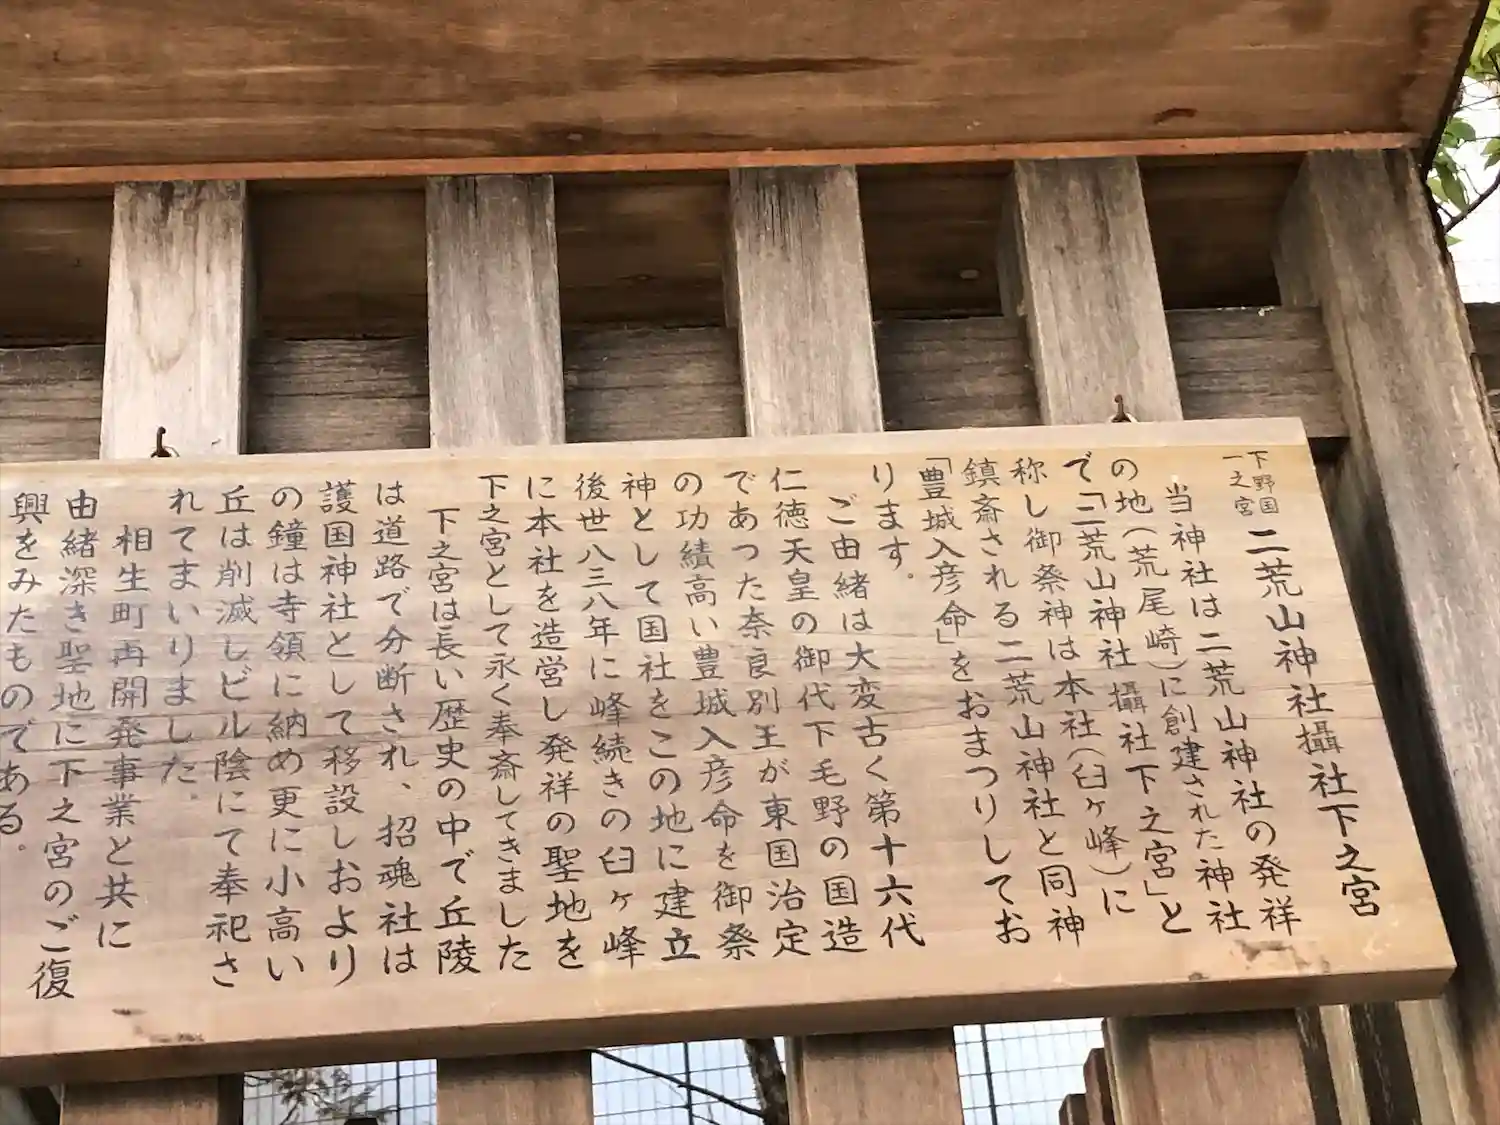 下野国
一之宮
二荒山神社攝社下之宮
当神社は二荒山神社の発祥
の地（荒尾崎）に創建された神社
で「二荒山神社攝社下之宮」と
称し御祭神は本社（臼ヶ峰）に
鎮斎される二荒山神社と同神
「豊城入彦命」をおまつりしてお
ります。
ご由緒は大変古く第十六代
仁徳天皇の御代下毛野の国造
であった奈良別王が東国治定
の功績高い豊城入彦命を御祭
神として国社をこの地に建立
後世八三八年に峰続きの臼ヶ峰
に本社を造営し発祥の聖地を
下之宮として永く奉斎してきました
下之宮は長い歴史の中で丘陵
は道路で分断され、招魂社は
護国神社として移設しおより
の鐘は寺領に納め更に小高い
丘は削滅しビル陰にて奉祀さ
れてまいりました。
相生町再開発事業と共に
由緒深き聖地に下之宮のご復
興をみたものである。